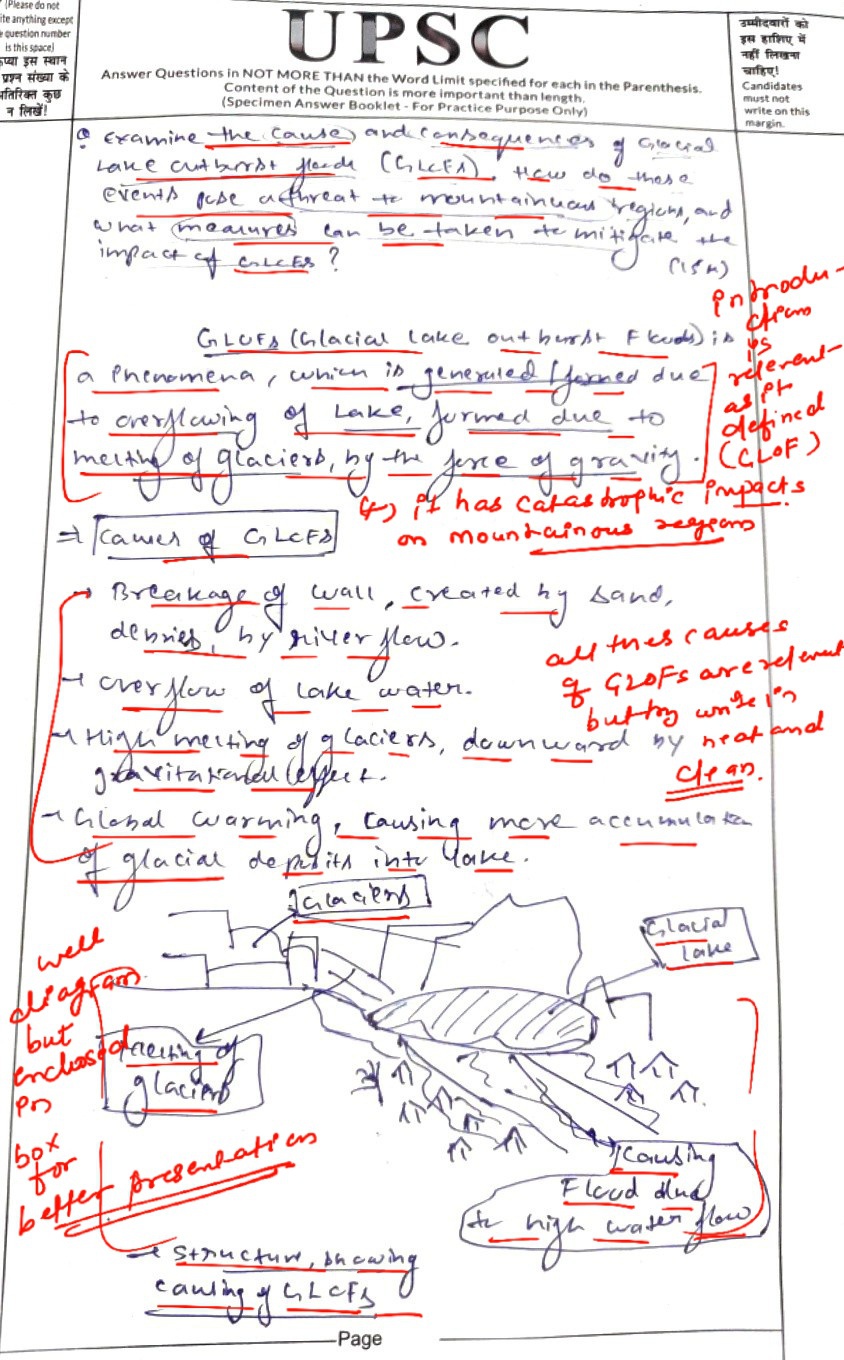 (Please do not
ite anything except
e question number
is this space)
प्या इस स्थान
प्रश्न संख्या के
तिरिक्त कुछ
न लिखें!
UPSC
Answer Questions in NOT MORE THAN the Word Limit specified for each in the Parenthesis.
Content of the Question is more important than length.
(Specimen Answer Booklet - For Practice Purpose Only)
उम्मीदवारों को
इस हाशिए में
नहीं लिखना
चाहिए!
Candidates
must not
write on this
margin.
Q Examine the Cause and Consequences of Glacial
Lake outburst floods (GLOFs). How do these
events pose a threat to mountainuous regions, and
what measures can be taken to mitigate the
impact of GLOFs ?
(15M)
GLOFs (Glacial Lake outburst Floods) is
a Phenomena, which is generated / formed due
to overflowing of Lake, formed due to
melting of glaciers, by the force of gravity.
introdu-
ction
is
relevent
as it
defined
(GLOF)
↳ it has catastrophic impacts
on mountainous region
⇒ Causes of GLOFs
→ Breakage of wall, created by sand,
debries, by river flow.
→ overflow of lake water.
→ High melting of glaciers, downward by
gravitational effect.
→ Global warming, causing more accumulation
of glacial deposits into lake.
all thes causes
of GLOFs are relevent
but try write in
neat and
clean.
Glaciers
Glacial
lake
Melting of
glaciers
well
diagram
but
enclosed
in
box
for
better presentation
Causing
Flood due
to high water flow
→ Structure, showing
causing of GLOFs
Page